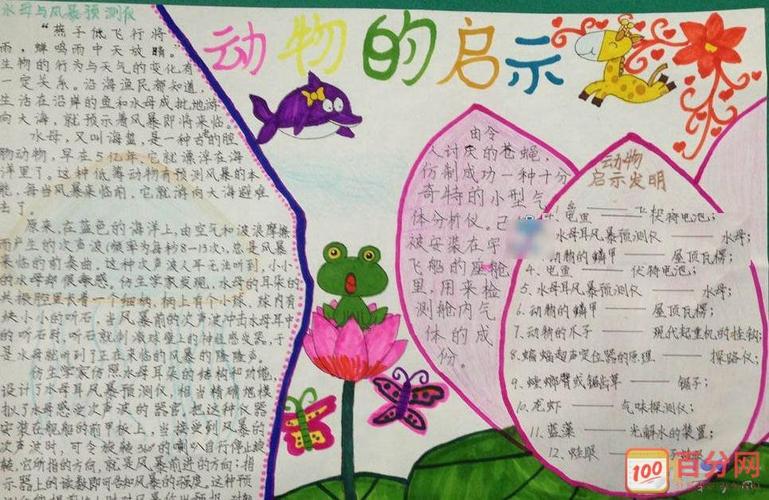 水母与风暴预测仪
“燕子低飞行将
雨,蝉鸣雨中天放晴。”
生物的行为与天气的变化有
一定关系。沿海渔民都知道,
生活在沿岸的鱼和水母成批地游
向大海,就预示着风暴即将来临。
水母,又叫海蜇,是一种古老的腔
肠动物,早在5亿年,它就漂浮在海
洋里了。这种低等动物有预测风暴的本
能,每当风暴来临前,它就游向大海避难
去了。
原来,在蓝色的海洋上,由空气和波浪摩擦
而产生的次声波(频率为每秒8-13次),总是风暴
来临的前奏曲。这种次声波人耳无法听到,小小
的水母却很敏感。仿生学家发现,水母的耳朵的
共振腔里长着一个细柄,柄上有个小球,球内有
块小小的听石,当风暴前的次声波冲击水母耳中
的听石时,听石就刺激球壁上的神经感受器,于
是水母就听到了正在来临的风暴的隆隆声。
仿生学家仿照水母耳朵的结构和功能,
设计了水母耳风暴预测仪,相当精确地模
拟了水母感受次声波的器官,把这种仪器
安装在舰船的前甲板上,当接受到风暴的
次声波时,可令旋转360°的喇叭自行停止旋
转,它所指的方向,就是风暴前进的方向;指
示器上的读数即可告知风暴的强度。这种预
动物的启示
由令
人讨厌的苍蝇,
仿制成功一种十分
奇特的小型气
体分析仪。已
被安装在宇
飞船的座舱
里,用来检
测舱内气
体的成
份。
动物
启示发明
电鱼——伏特电池;
水母耳风暴预测仪——水母;
动物的鳞甲——屋顶瓦楞;
4、电鱼——伏特电池;
5、水母耳风暴预测仪——水母;
6、动物的鳞甲——屋顶瓦楞;
7、动物的爪子——现代起重机的挂钩;
8、蝙蝠超声定位器的原理——探路仪;
9、螳螂臂或锯齿草——锯子;
10、龙虾——气味探测仪;
11、蓝藻——光解水的装置;
12、蛙眼
100
百分网